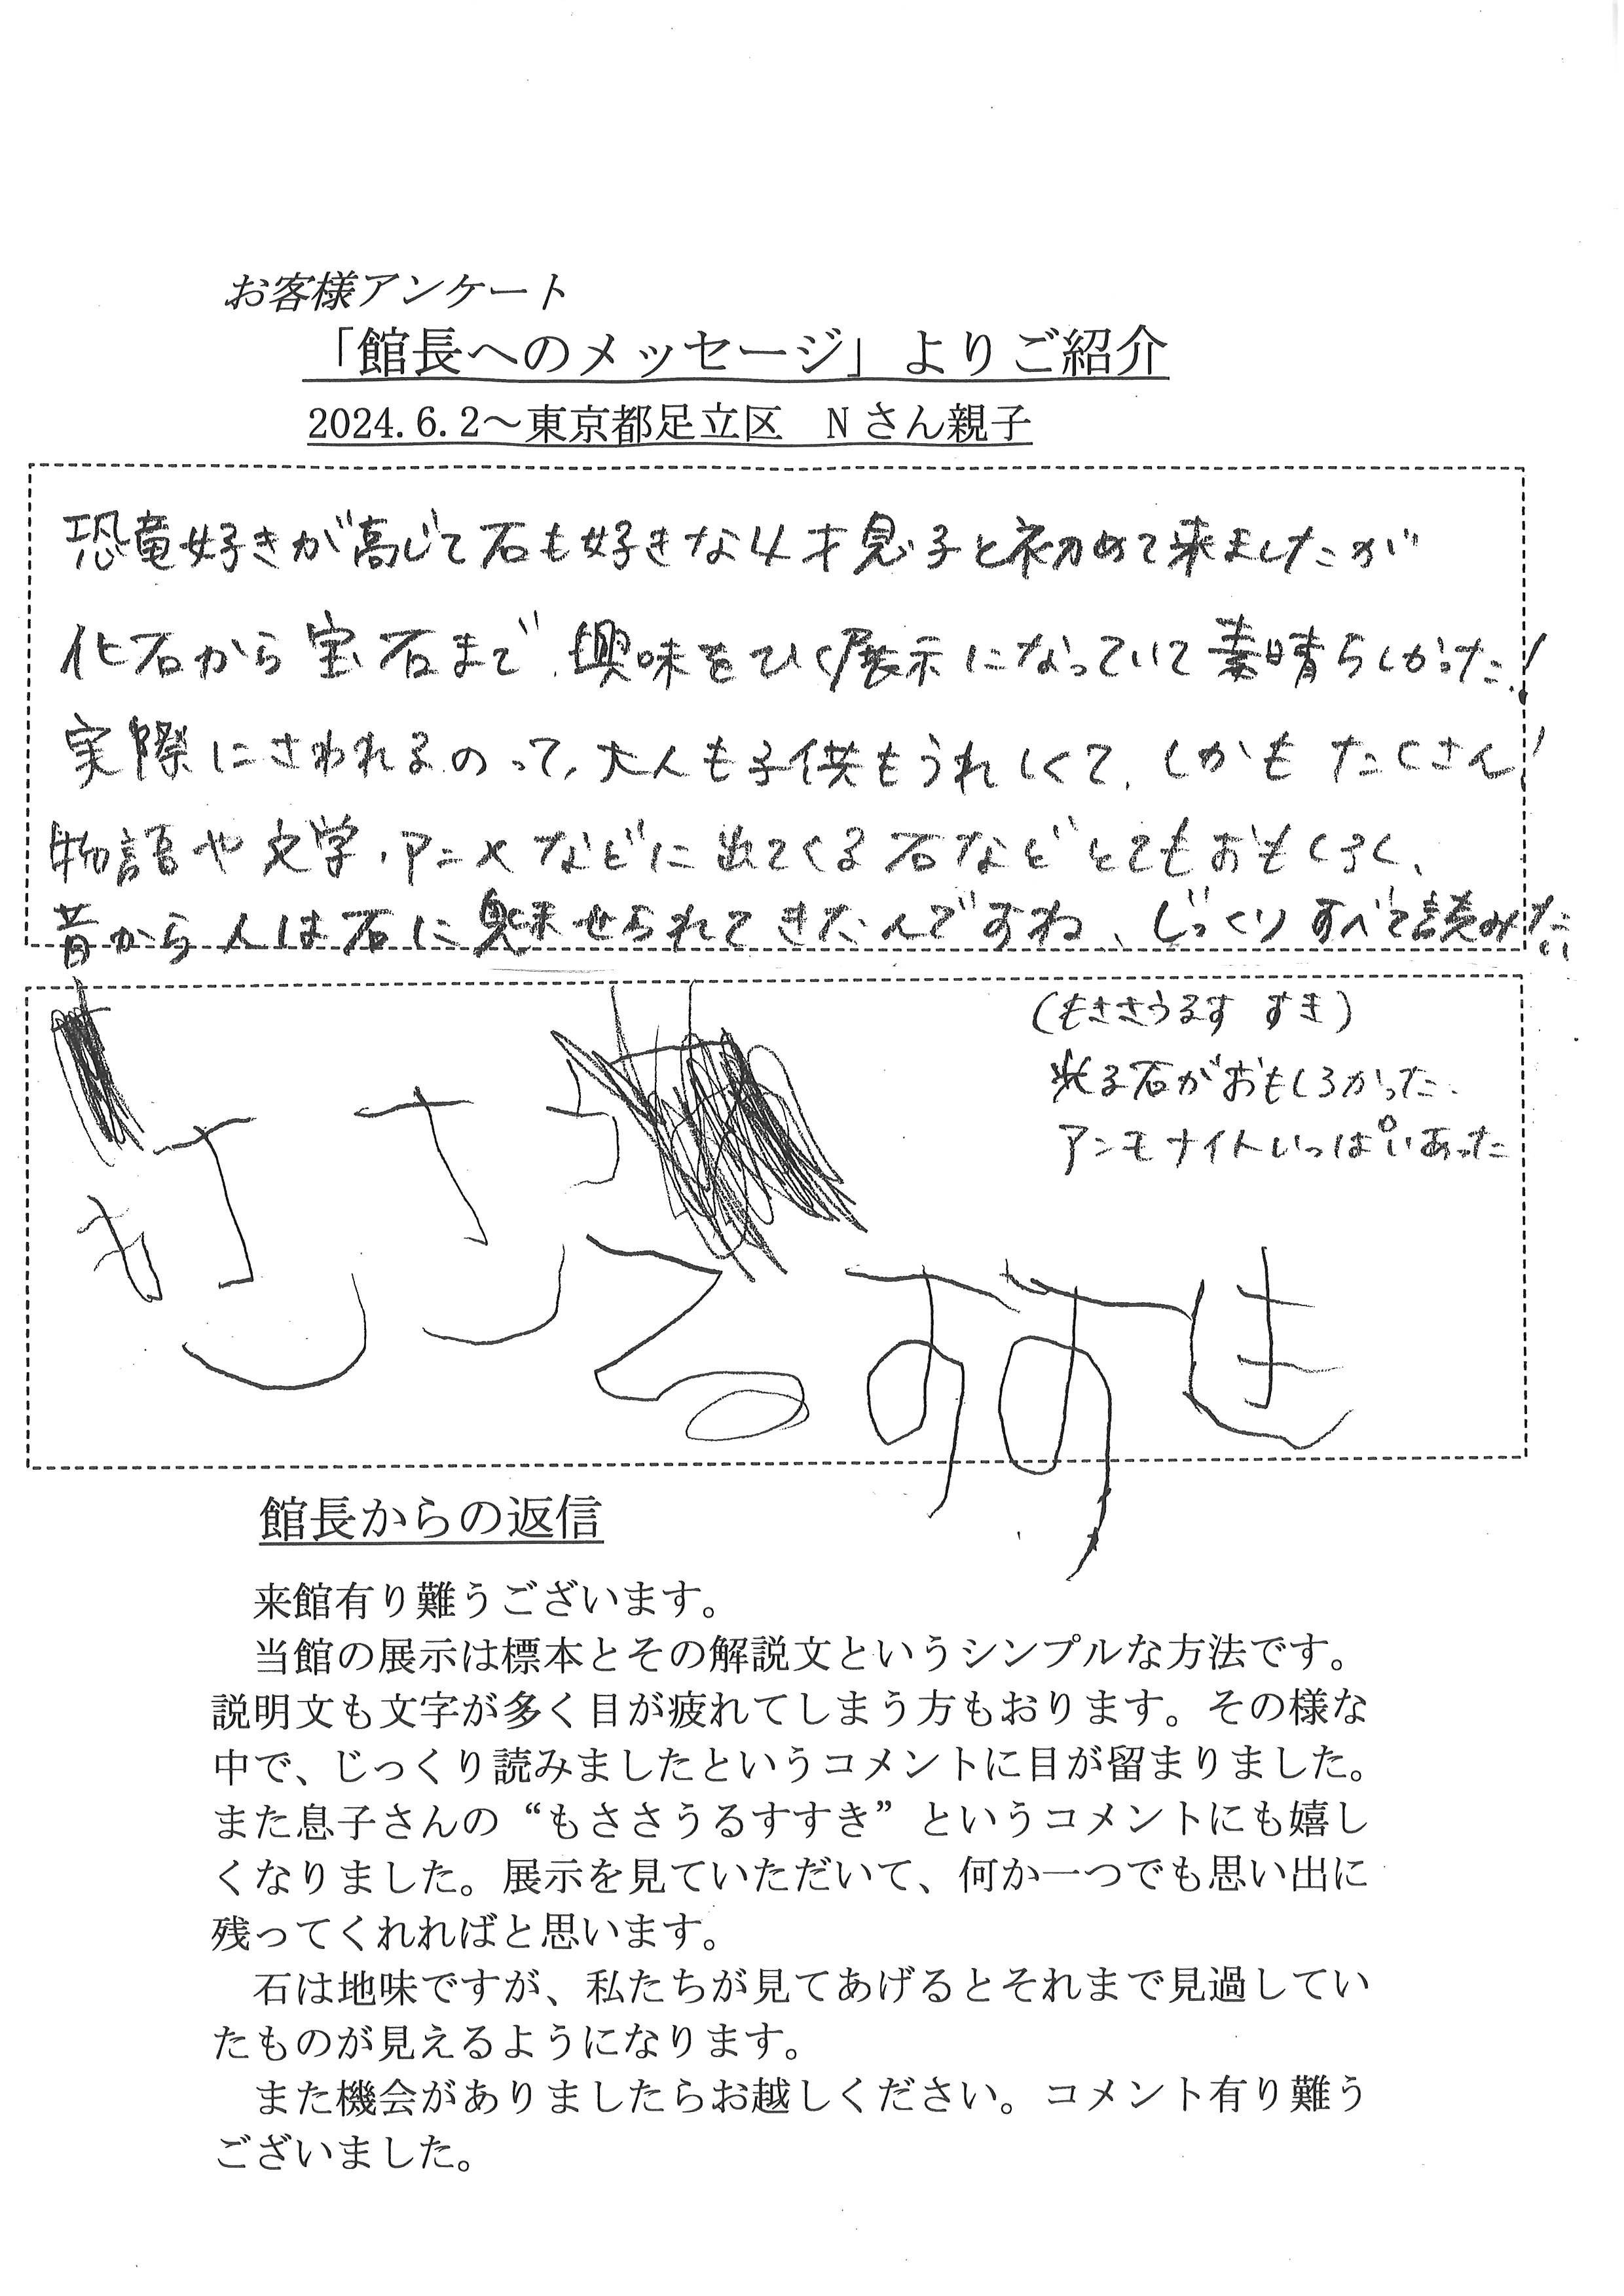 お客様アンケート
「館長へのメッセージ」よりご紹介
2024.6.2～東京都足立区　Nさん親子
恐竜好きが高じて石も好きな4才息子と初めて来ましたが
化石から宝石まで、興味をひく展示になっていて素晴らしかった!
実際にさわれるのって、大人も子供もうれしくて、しかもたくさん!
物語や文学・アニメなどに出てくる石などとてもおもしろく、
昔から人は石に魅せられてきたんですね、じっくりすべて読みたい
(もささうるす すき)
光る石がおもしろかった.
アンモナイトいっぱいあった
もささうるすすき
館長からの返信
来館有り難うございます。
当館の展示は標本とその解説文というシンプルな方法です。
説明文も文字が多く目が疲れてしまう方もおります。その様な
中で、じっくり読みましたというコメントに目が留まりました。
また息子さんの“もささうるすすき”というコメントにも嬉し
くなりました。展示を見ていただいて、何か一つでも思い出に
残ってくれればと思います。
石は地味ですが、私たちが見てあげるとそれまで見過してい
たものが見えるようになります。
また機会がありましたらお越しください。コメント有り難う
ございました。